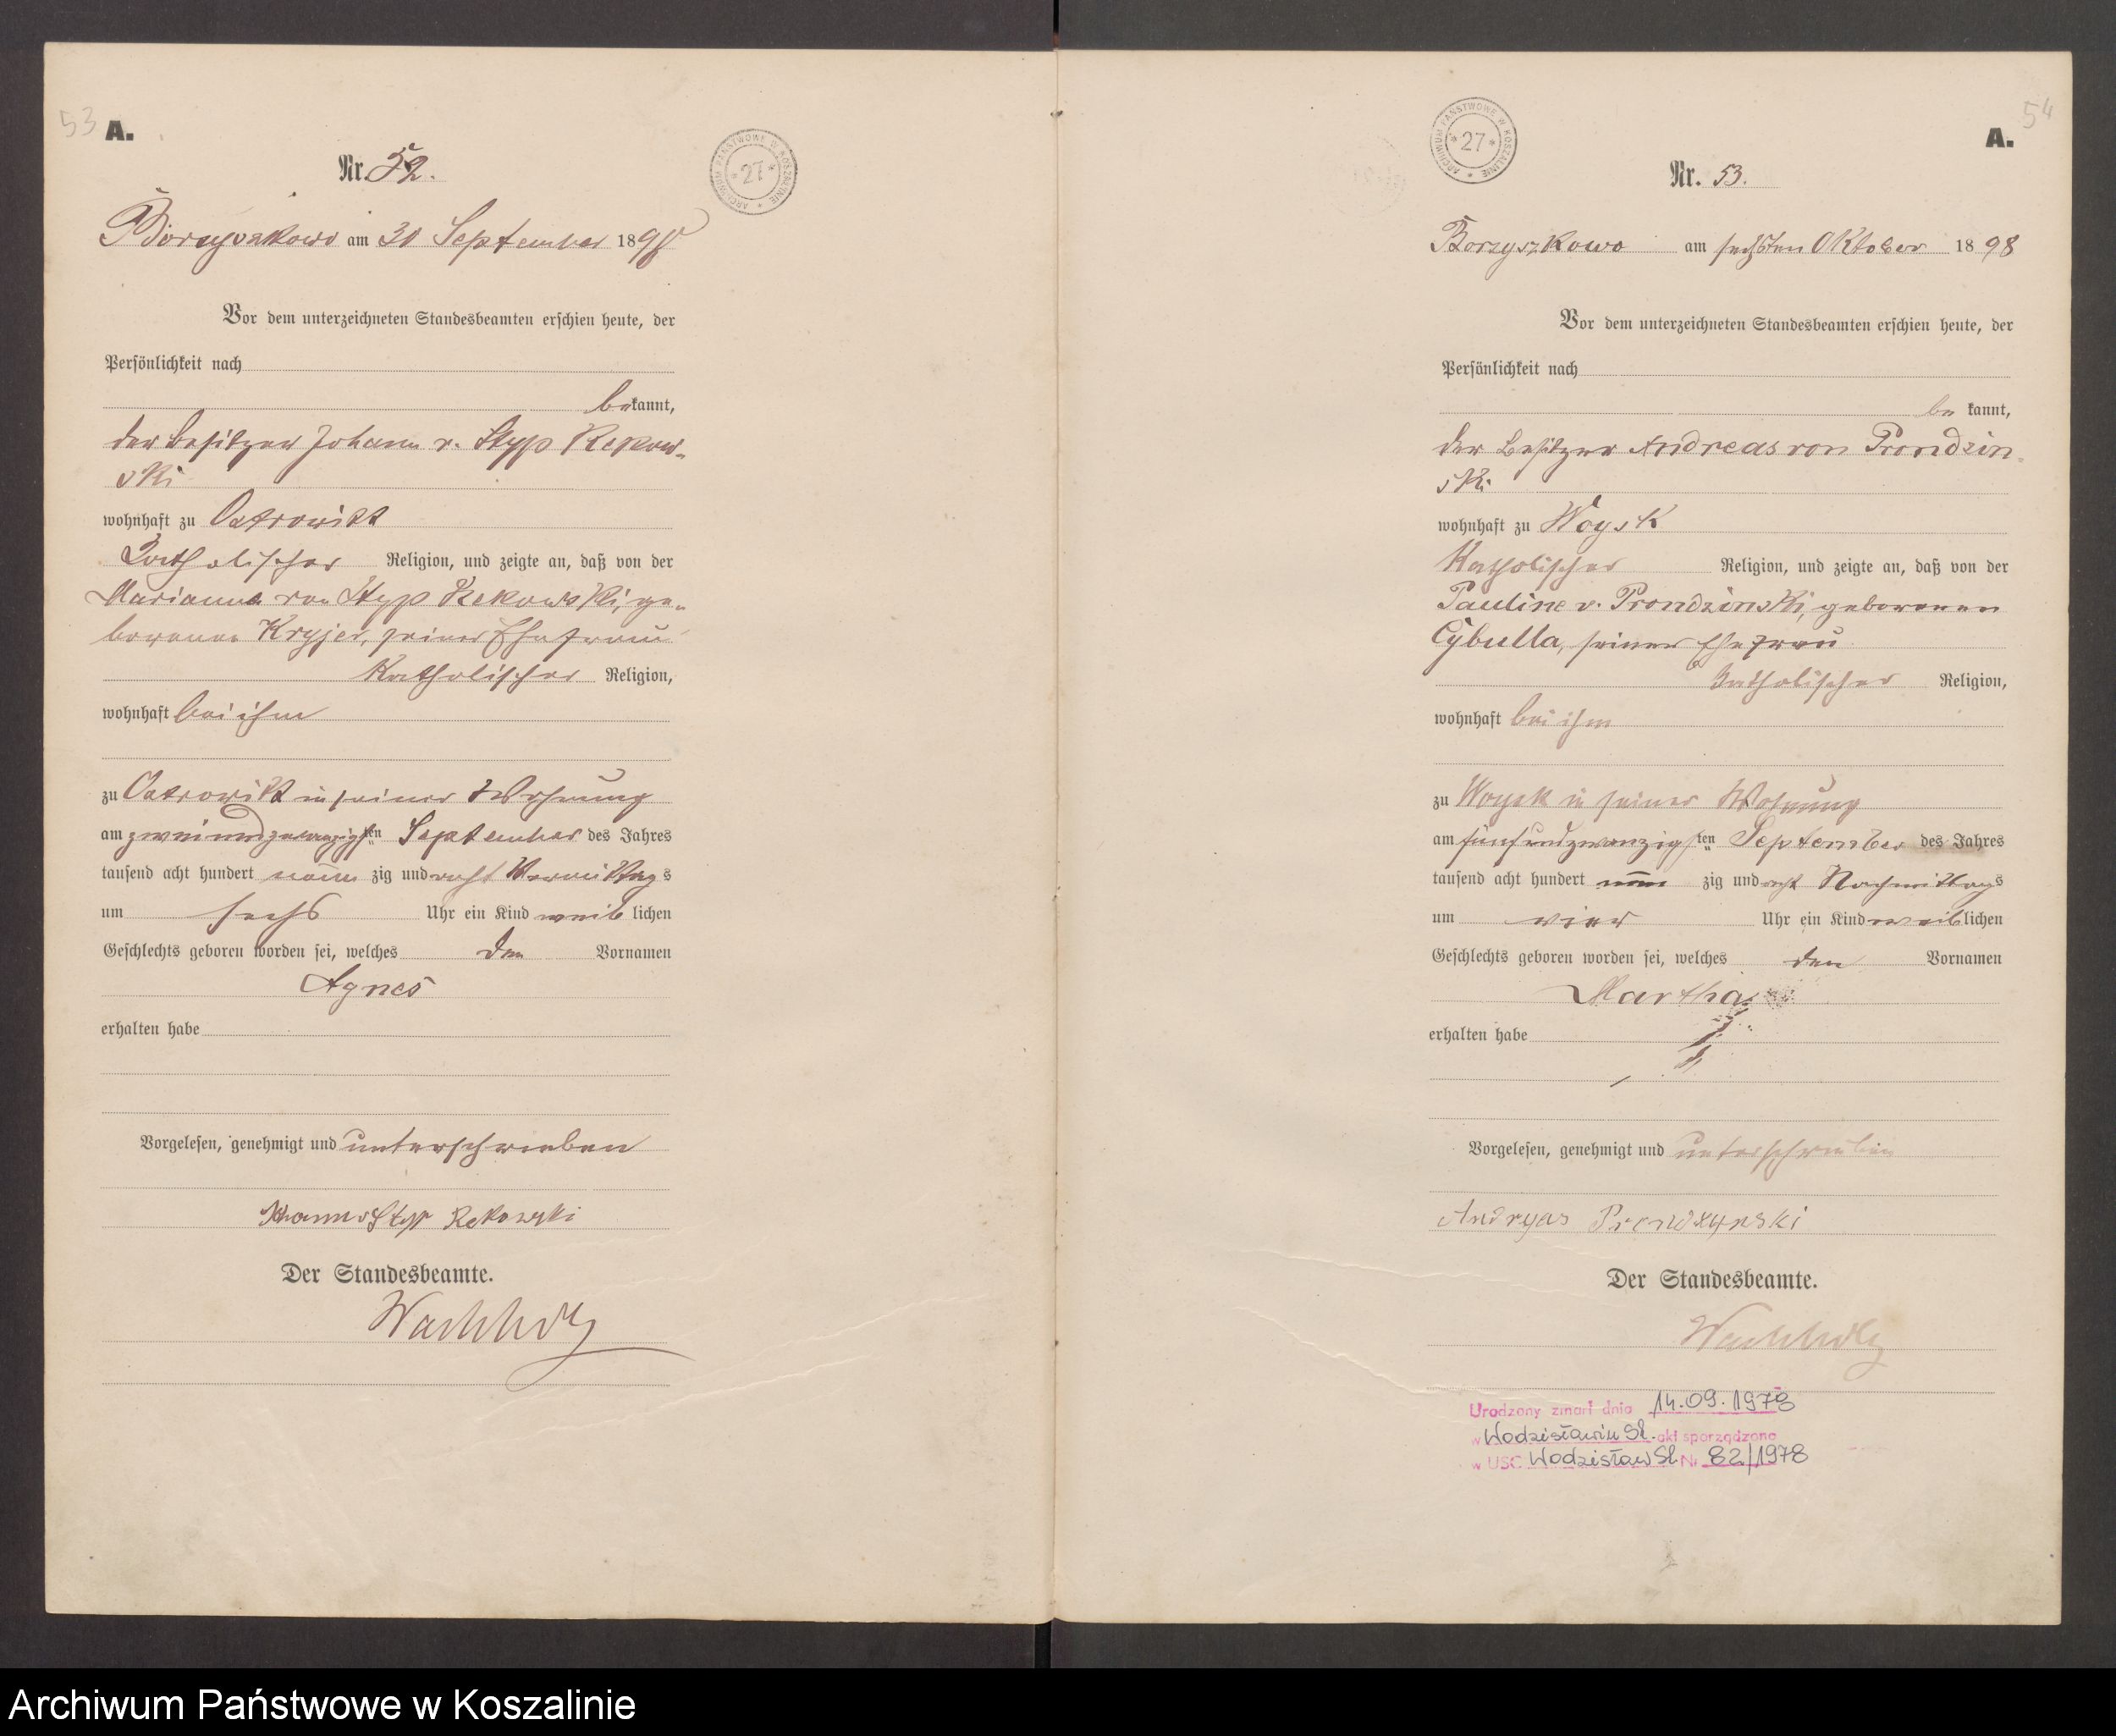 53 A.
Nr. 52.
ARCHIWUM PAŃSTWOWE W KOSZALINIE * 27 *
Borzyszkowo am 30 September 1898
Vor dem unterzeichneten Standesbeamten erschien heute, der
Persönlichkeit nach
bekannt,
der Besitzer Johann v. Styp Rekow-
ski
wohnhaft zu Ostrowitt
Katholischer Religion, und zeigte an, daß von der
Marianna von Styp Rekowski, ge-
borenen seiner Ehefrau
Katholischer Religion,
wohnhaft bei ihm
zu Ostrowitt in seiner Wohnung
am zweiundzwanzigsten September des Jahres
tausend acht hundert neun zig und acht Vormittags
um sechs Uhr ein Kind weiblichen
Geschlechts geboren worden sei, welches den Vornamen
Agnes
erhalten habe
Vorgelesen, genehmigt und unterschrieben
Johann v Styp Rekowski
Der Standesbeamte.
Wachholz
54
A.
ARCHIWUM PAŃSTWOWE W KOSZALINIE * 27 *
Nr. 53.
Borzyszkowo am sechsten Oktober 1898
Vor dem unterzeichneten Standesbeamten erschien heute, der
Persönlichkeit nach
bekannt,
der Besitzer Andreas von Prondzin-
ski
wohnhaft zu Woysk
Katholischer Religion, und zeigte an, daß von der
Pauline v. Prondzinski, geborenen
Cybulla, seiner Ehefrau
Katholischer Religion,
wohnhaft bei ihm
zu Woysk in seiner Wohnung
am fünfundzwanzigsten September des Jahres
tausend acht hundert neun zig und acht Nachmittags
um vier Uhr ein Kind weiblichen
Geschlechts geboren worden sei, welches den Vornamen
Martha
erhalten habe
Vorgelesen, genehmigt und unterschrieben
Andryas Prondzynski
Der Standesbeamte.
Wachholz
Urodzony zmarł dnia 14.09.1978
w Wodzisławiu Śl. akt sporządzono
w USC Wodzisław Śl. Nr 82/1978
Archiwum Państwowe w Koszalinie